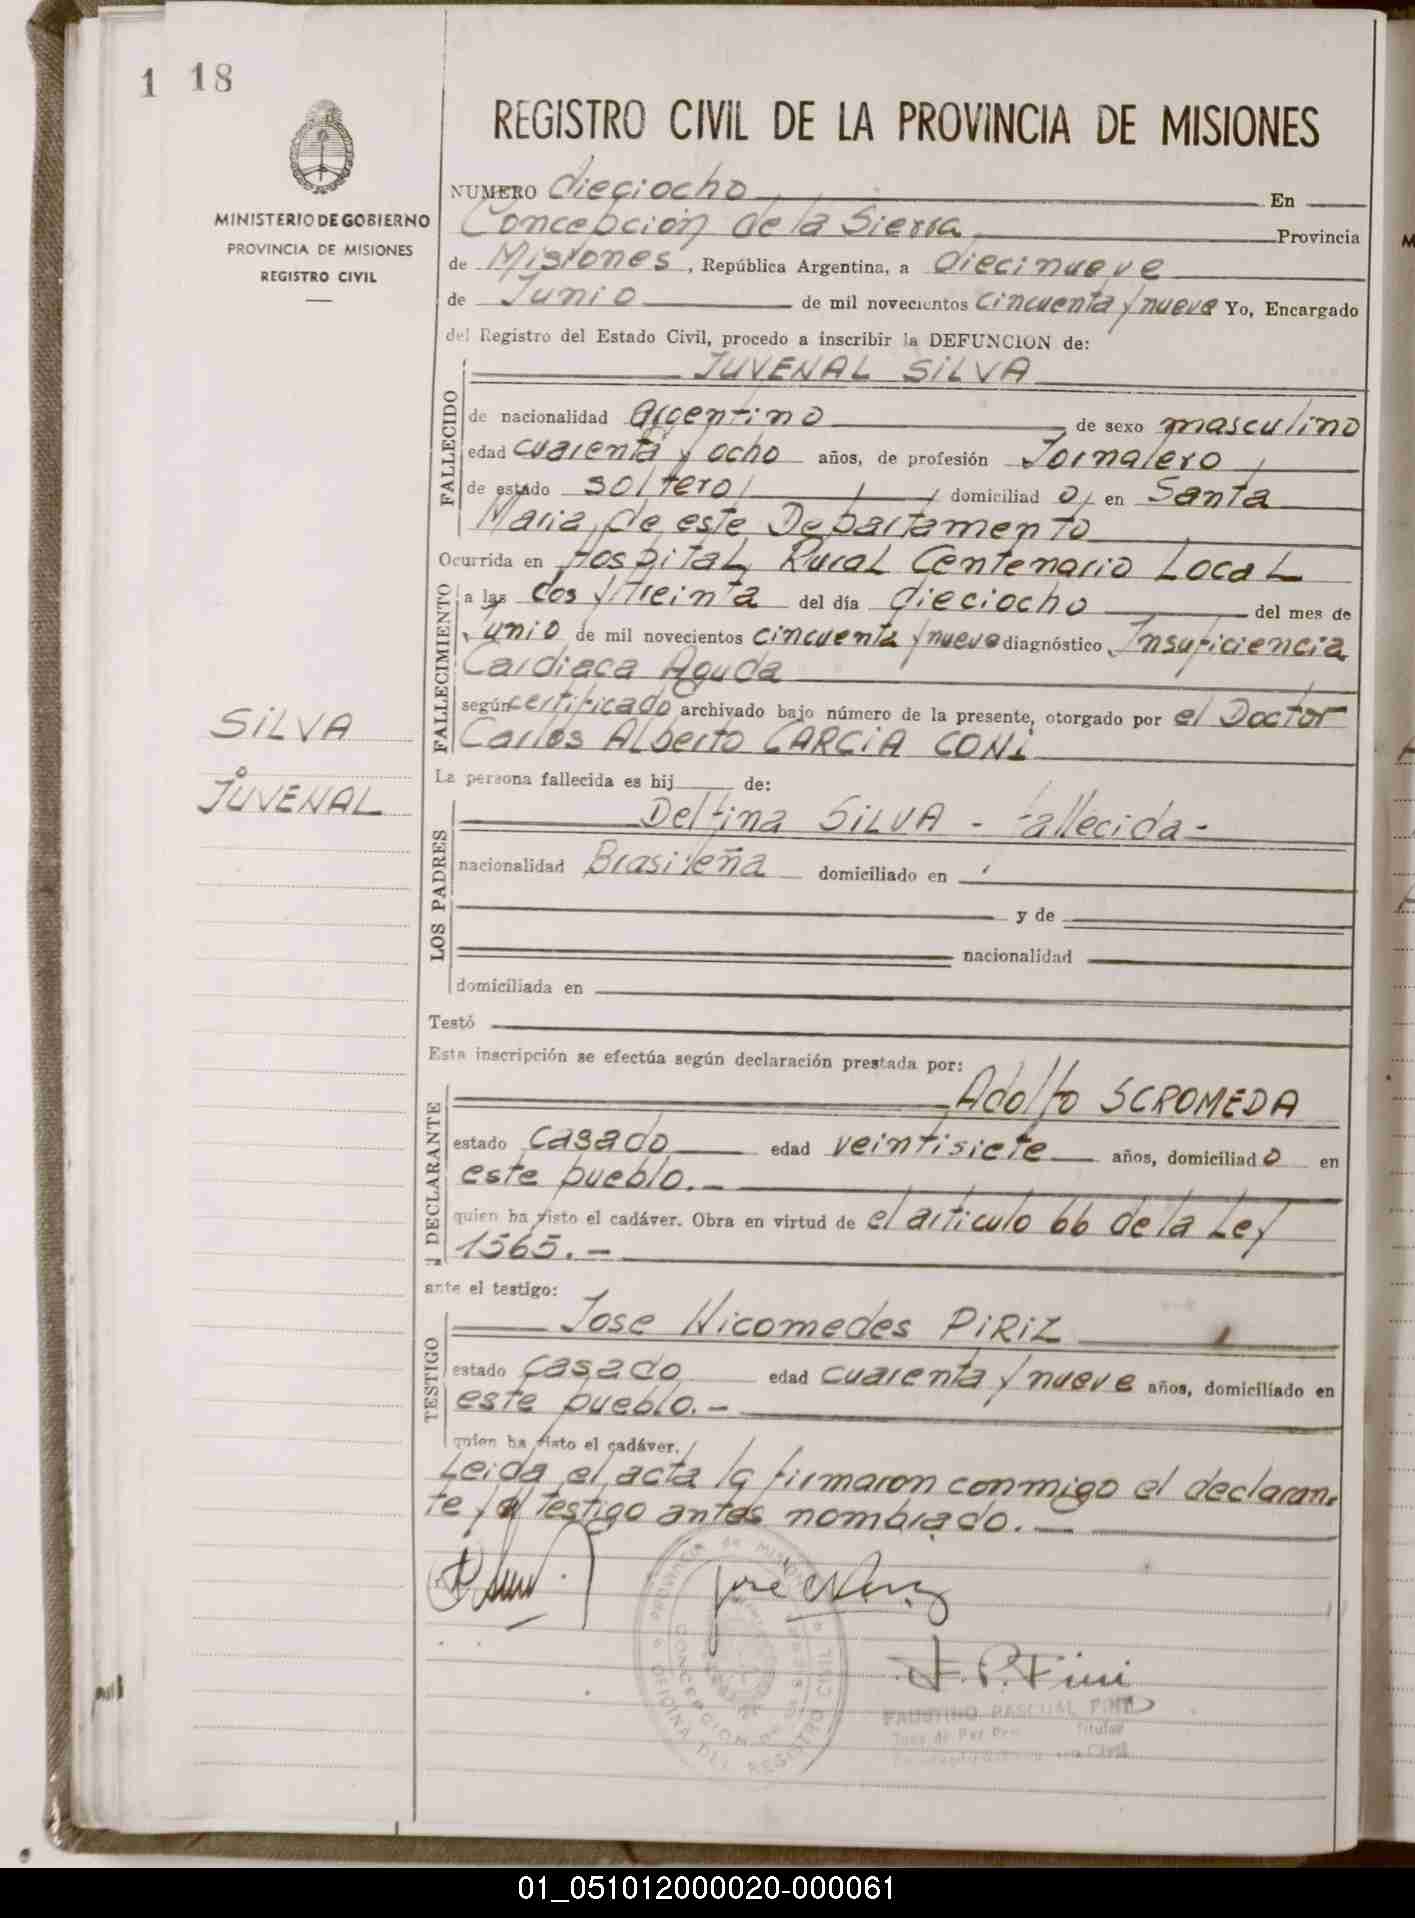 1 18
MINISTERIO DE GOBIERNO
PROVINCIA DE MISIONES
REGISTRO CIVIL
REGISTRO CIVIL DE LA PROVINCIA DE MISIONES
NUMERO dieciocho En
Concepción de la Sierra Provincia
de Misiones, República Argentina, a diecinueve
de Junio de mil novecientos cincuenta y nueve Yo, Encargado
del Registro del Estado Civil, procedo a inscribir la DEFUNCION de:
JUVENAL SILVA
FALLECIDO
de nacionalidad Argentino de sexo masculino
edad cuarenta y ocho años, de profesión Jornalero
de estado soltero domiciliad o en Santa
Maria, de este Departamento
Ocurrida en Hospital Rural Centenario Local
FALLECIMIENTO
a las dos y treinta del día dieciocho del mes de
Junio de mil novecientos cincuenta y nueve diagnóstico Insuficiencia
Cardiaca Aguda
según certificado archivado bajo número de la presente, otorgado por el Doctor
Carlos Alberto GARCIA CONI
SILVA
JUVENAL
La persona fallecida es hij de:
LOS PADRES
Delfina SILVA - fallecida-
nacionalidad Brasileña domiciliado en
y de
nacionalidad
domiciliada en
Testó
Esta inscripción se efectúa según declaración prestada por:
DECLARANTE
Adolfo SCROMEDA
estado casado edad veintisiete años, domiciliad o en
este pueblo.-
quien ha visto el cadáver. Obra en virtud de el articulo 66 de la Ley
1565.-
ante el testigo:
TESTIGO
Jose Nicomedes PIRIZ
estado casado edad cuarenta y nueve años, domiciliado en
este pueblo.-
quien ha visto el cadáver.
Leida el acta la firmaron conmigo el declaran-
te y el testigo antes nombrado.-
F. P. Fini
FAUSTINO PASCUAL FINI
Juez de Paz Titular
PROVINCIA DE MISIONES
OFICINA DEL REGISTRO CIVIL
CONCEPCION DE
01_051012000020-000061